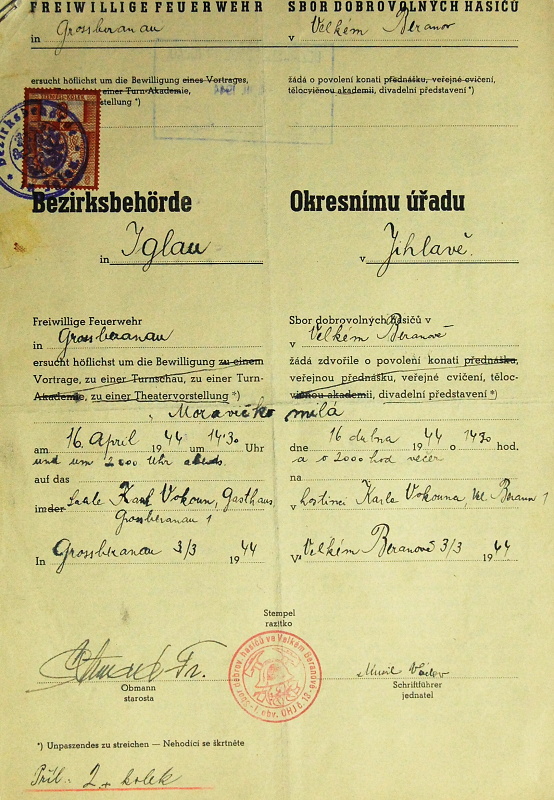 FREIWILLIGE FEUERWEHR
in Grossberanau
ersucht höflichst um die Bewilligung eines Vortrages,
einer Turn-Akademie,
stellung *)
Bezirksbehörde
in Iglau
Freiwillige Feuerwehr
in Grossberanau
ersucht höflichst um die Bewilligung zu einem
Vortrage, zu einer Turnschau, zu einer Turn-
Akademie, zu einer Theatervorstellung *)
SBOR DOBROVOLNÝCH HASIČŮ
v Velkém Beranov
žádá o povolení konati přednášku, veřejné cvičení,
tělocvičnou akademii, divadelní představení *)
Okresnímu úřadu
v Jihlavě.
Sbor dobrovolných hasičů v
v Velkém Beranově
žádá zdvořile o povolení konati přednášku,
veřejnou přednášku, veřejné cvičení, těloc-
vičnou akademii, divadelní představení *)
„Moravičko milá
am 16. April 1944 um 14·30 Uhr
und um 2000 Uhr abends.
auf das
im der Saale Karl Vokoun, Gasthaus
Grossberanau 1
In Grossberanau 3/3 1944
dne 16 dubna 1944 o 1430 hod.
a o 2000 hod večer
na
v hostinci Karla Vokouna, Vel. Beranov 1
V Velkém Beranově 3/3 1944
Stempel
razítko
Sbor dobrov. hasičů ve Velkém Beranově
Obmann
starosta
Musil Václav
Schriftführer
jednatel
*) Unpassendes zu streichen — Nehodící se škrtněte
Příl. 2 + kolek